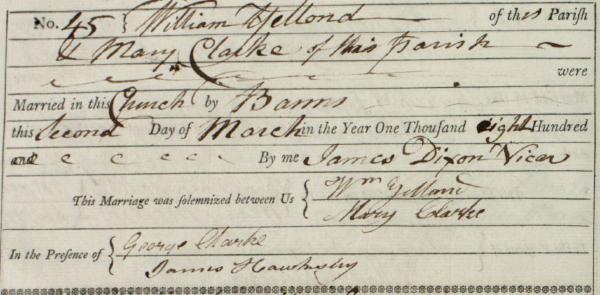 No. 45 { William Yellond of this Parish
& Mary Clarke of this Parish
were
Married in this Church by Banns
this Second Day of March in the Year One Thousand eight Hundred
and By me James Dixon Vicar
This Marriage was solemnized between Us { Wm Yellond
Mary Clarke
In the Presence of { George Clarke
James Hawksley